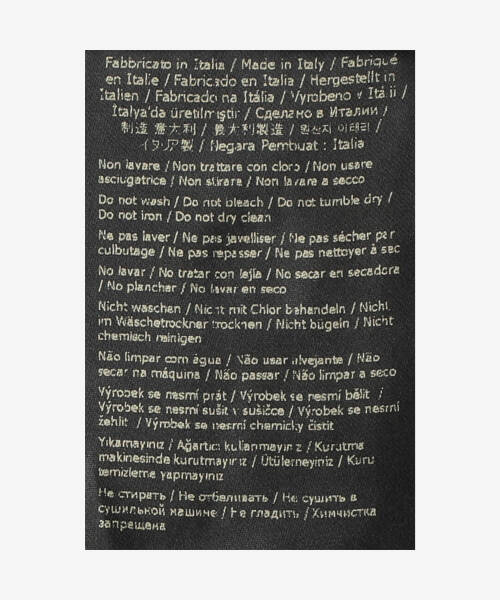 Fabbricato in Italia / Made in Italy / Fabriqué
en Italie / Fabricado en Italia / Hergestellt in
Italien / Fabricado na Itália / Vyrobeno v Itálii /
İtalya'da üretilmiştir / Сделано в Италии /
制造 意大利 / 義大利製造 / 원산지 이태리 /
イタリア製 / Negara Pembuat : Italia
Non lavare / Non trattare con cloro / Non usare
asciugatrice / Non stirare / Non lavare a secco
Do not wash / Do not bleach / Do not tumble dry /
Do not iron / Do not dry clean
Ne pas laver / Ne pas javelliser / Ne pas sécher par
culbutage / Ne pas repasser / Ne pas nettoyer à sec
No lavar / No tratar con lejía / No secar en secadora
/ No planchar / No lavar en seco
Nicht waschen / Nicht mit Chlor behandeln / Nicht
im Wäschetrockner trocknen / Nicht bügeln / Nicht
chemisch reinigen
Não limpar com água / Não usar alvejante / Não
secar na máquina / Não passar / Não limpar a seco
Výrobek se nesmí prát / Výrobek se nesmí bělit /
Výrobek se nesmí sušit v sušičce / Výrobek se nesmí
žehlit / Výrobek se nesmí chemicky čistit
Yıkamayınız / Ağartıcı kullanmayınız / Kurutma
makinesinde kurutmayınız / Ütülemeyiniz / Kuru
temizleme yapmayınız
Не стирать / Не отбеливать / Не сушить в
сушильной машине / Не гладить / Химчистка
запрещена